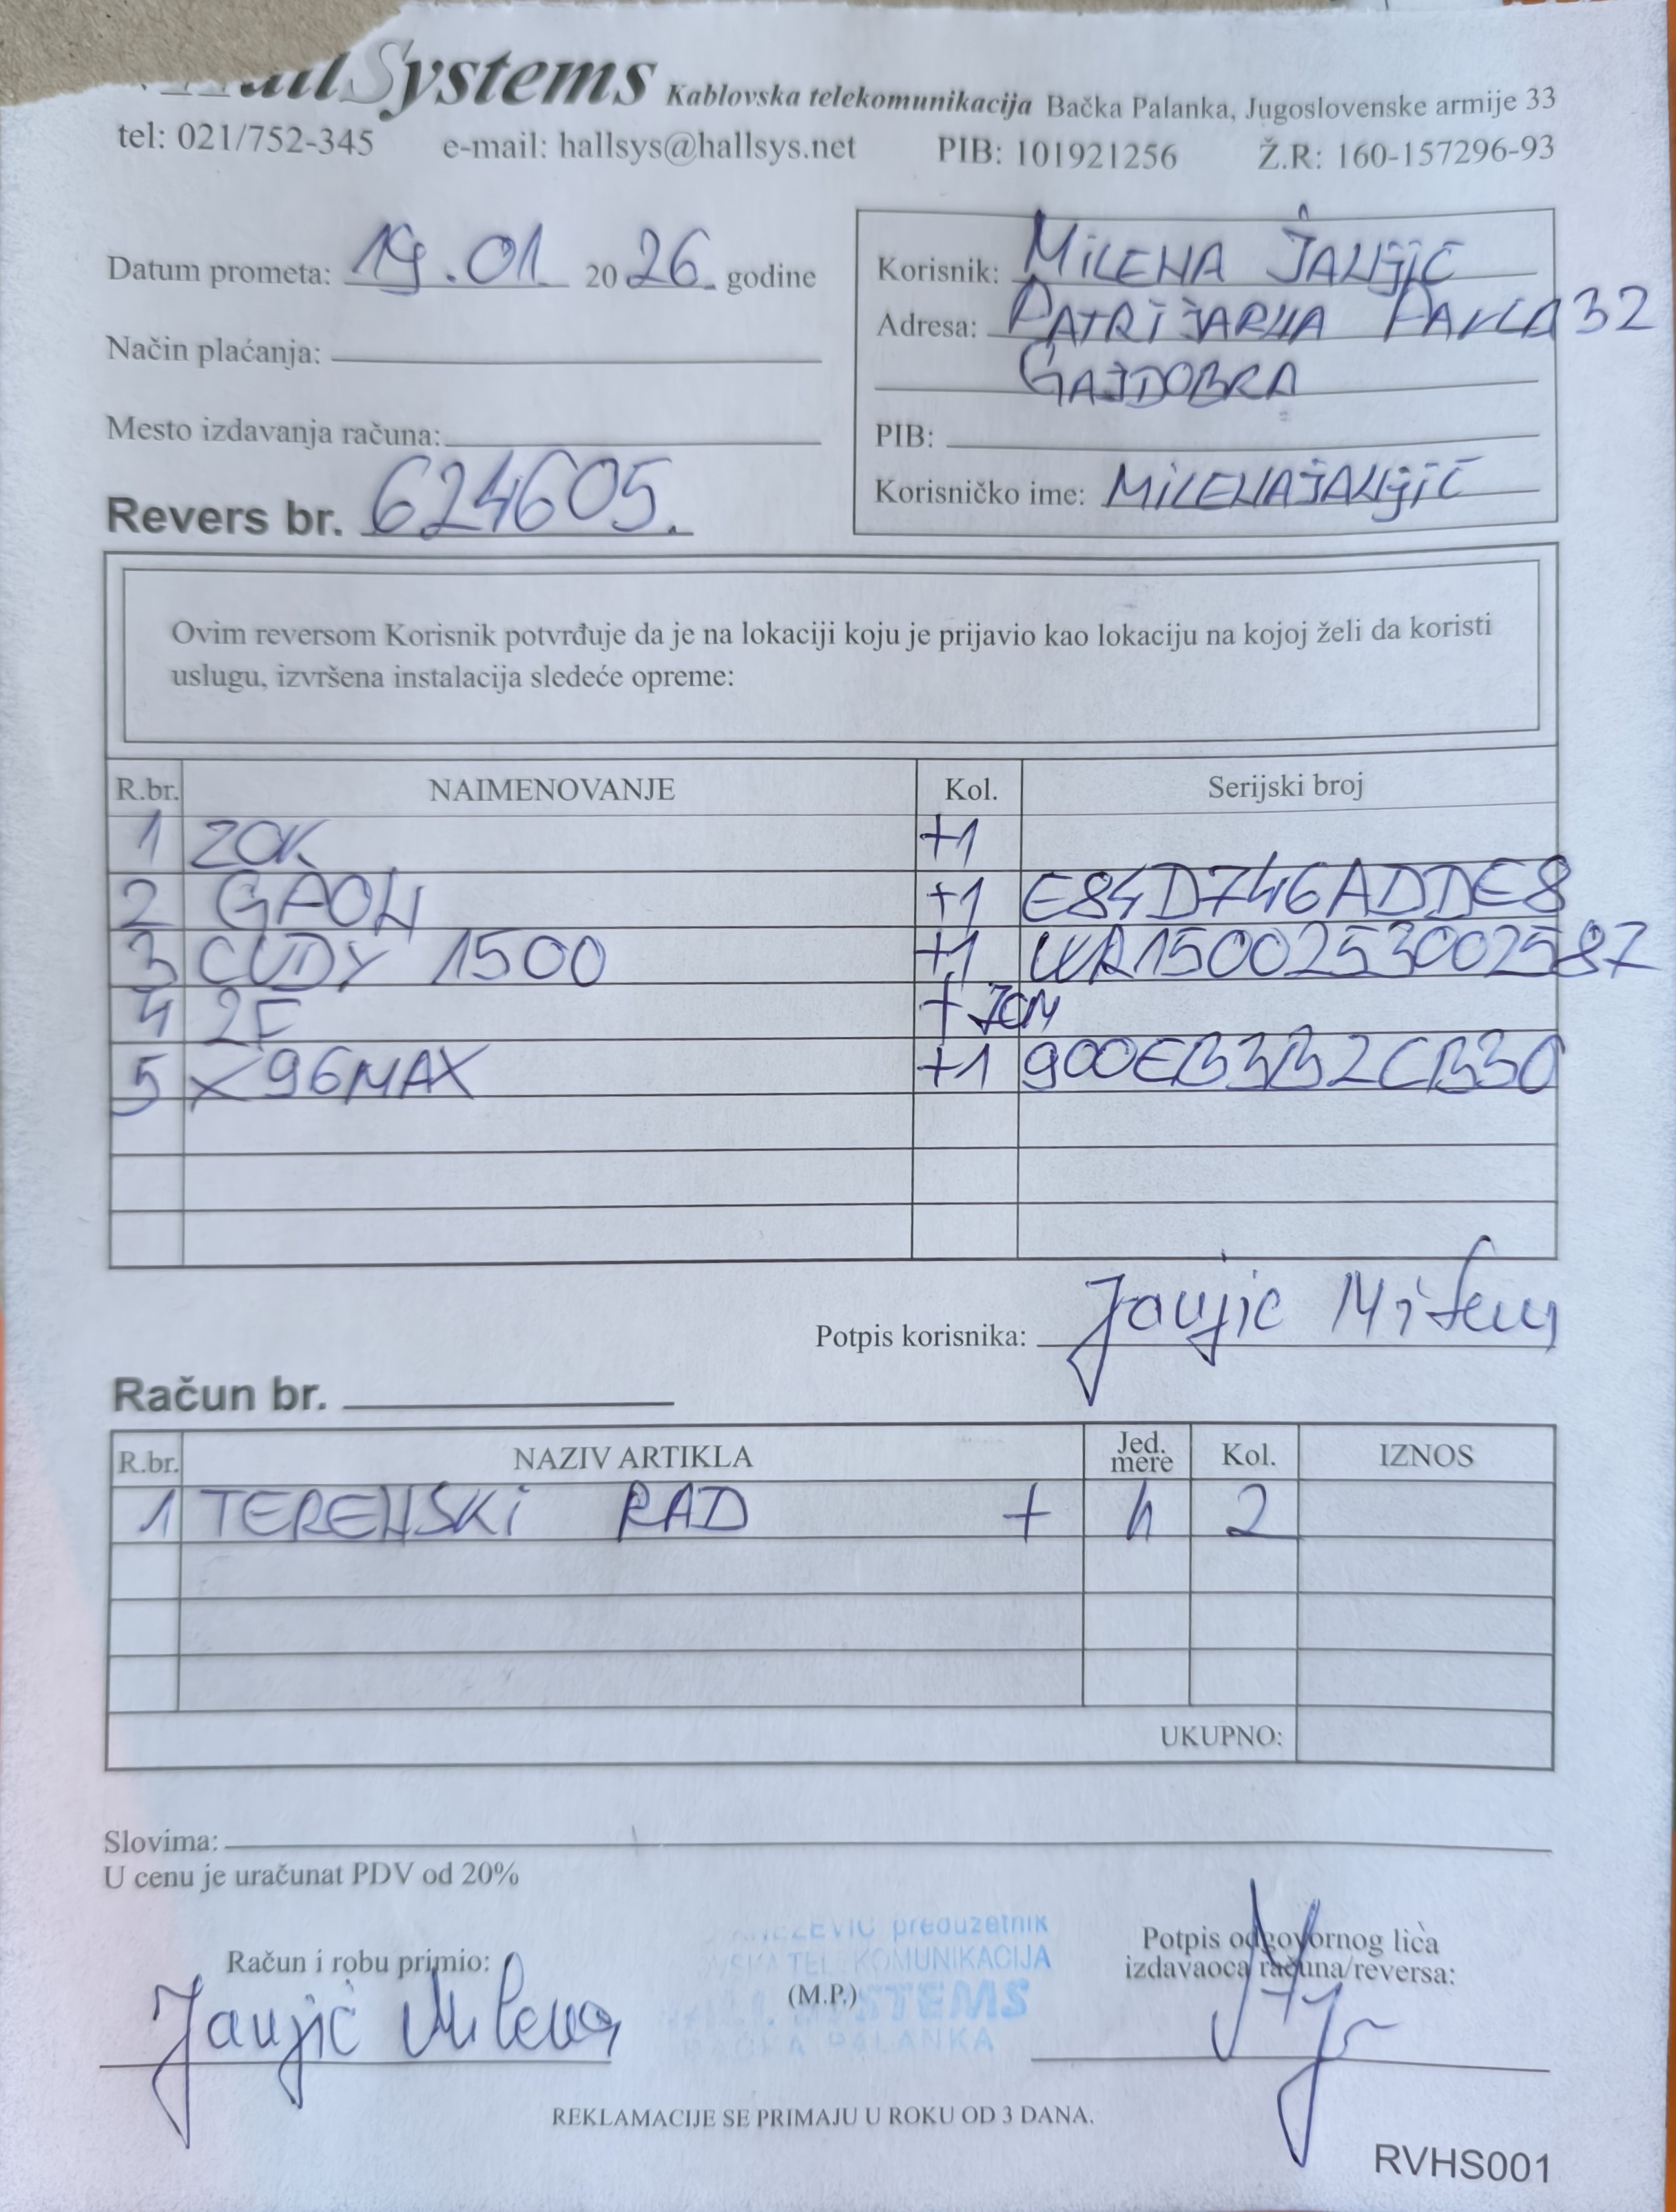 Systems Kablovska telekomunikacija Bačka Palanka, Jugoslovenske armije 33
tel: 021/752-345 e-mail: hallsys@hallsys.net PIB: 101921256 Ž.R: 160-157296-93
Datum prometa: 19.01. 2026. godine
Način plaćanja:
Mesto izdavanja računa:
Revers br. 624605.
Korisnik: MILENA JANJIĆ
Adresa: PATRIJARHA PAVLA 32
GAJDOBRA
PIB:
Korisničko ime: MILENAJANJIĆ
Ovim reversom Korisnik potvrđuje da je na lokaciji koju je prijavio kao lokaciju na kojoj želi da koristi
uslugu, izvršena instalacija sledeće opreme:
R.br. NAIMENOVANJE Kol. Serijski broj
1 ZOK +1
2 GAON +1 E84D746ADDE8
3 CUDY 1500 +1 WR1500253002587
4 2F +
5 X96MAX +1 900EB3B2CB30
Potpis korisnika: Janjić Milena
Račun br.
R.br. NAZIV ARTIKLA Jed. mere Kol. IZNOS
1 TERENSKI RAD + h 2
UKUPNO:
Slovima:
U cenu je uračunat PDV od 20%
Račun i robu primio:
Janjić Milena
preduzetnik
KOMUNIKACIJA
(M.P.)
SYSTEMS
BAČKA PALANKA
Potpis odgovornog lica
izdavaoca računa/reversa:
REKLAMACIJE SE PRIMAJU U ROKU OD 3 DANA.
RVHS001